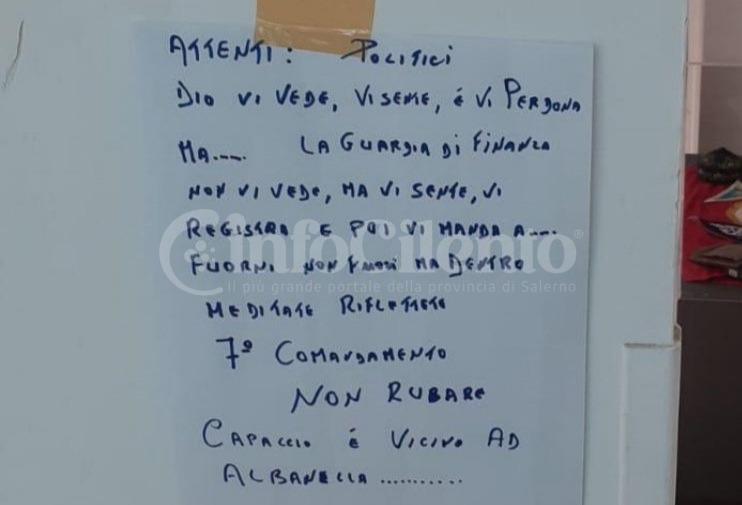 ATTENTI: POLITICI
DIO VI VEDE, VI SENTE, É VI PERDONA
MA.... LA GUARDIA DI FINANZA
NON VI VEDE, MA VI SENTE, VI
REGISTRA E POI VI MANDA A....
FUORNI NON FUORI MA DENTRO
MEDITATE RIFLETTETE
7º COMANDAMENTO
NON RUBARE
CAPACCIO É VICINO AD
ALBANELLA ...........
infoCilento®
il più grande portale della provincia di Salerno